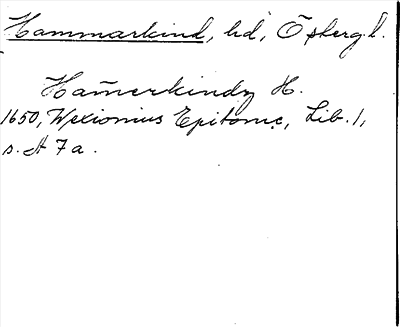 Hammarkind, hd, Östergl.
Ham̄erkindz H.
1650, Wexionius Epitome, Lib. 1,
s. A 7a.